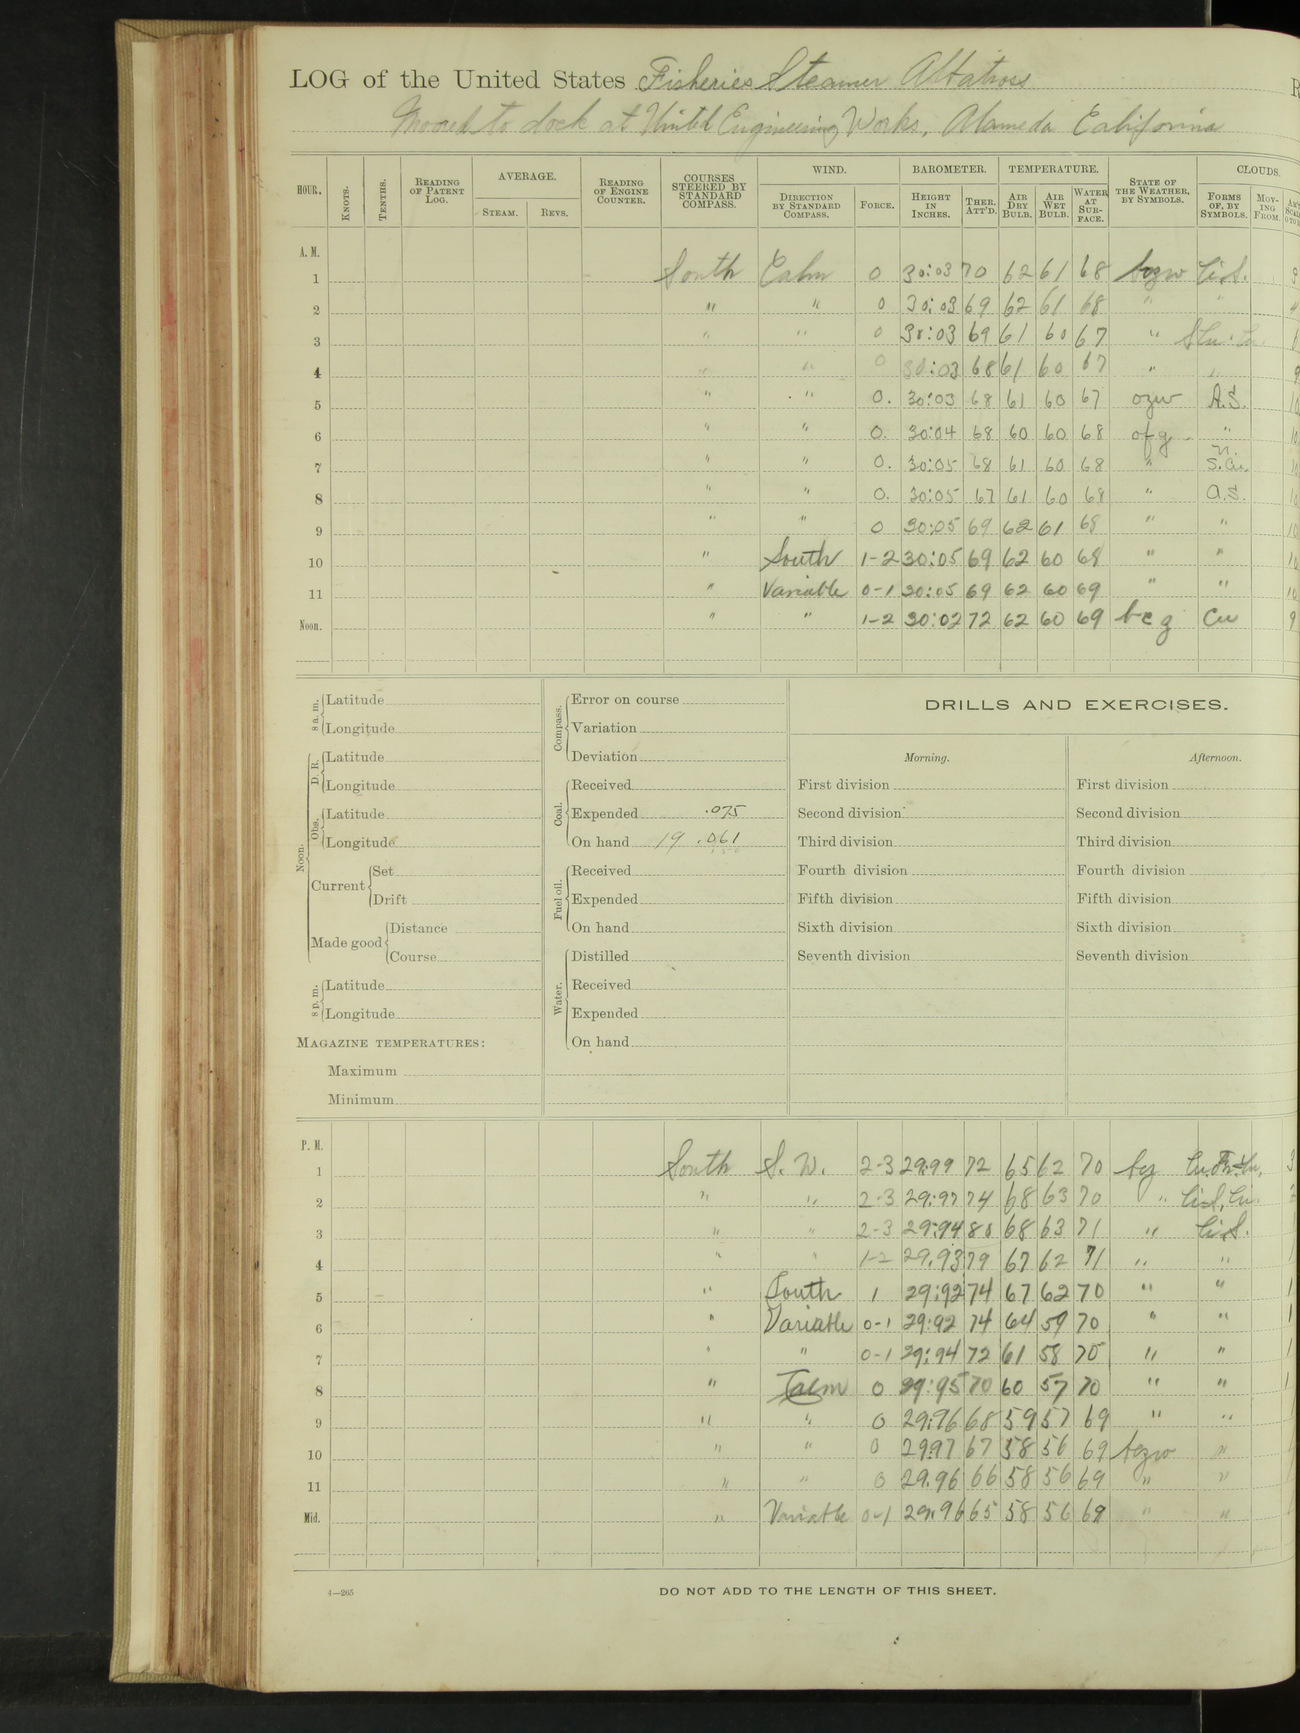 LOG of the United States Fisheries Steamer Albatross R
Moored to dock at United Engineering Works, Alameda California
HOUR. KNOTS. TENTHS. READING OF PATENT LOG. AVERAGE. STEAM. REVS. READING OF ENGINE COUNTER. COURSES STEERED BY STANDARD COMPASS. WIND. DIRECTION BY STANDARD COMPASS. FORCE. BAROMETER. HEIGHT IN INCHES. THER. ATT'D. TEMPERATURE. AIR DRY BULB. AIR WET BULB. WATER AT SURFACE. STATE OF THE WEATHER, BY SYMBOLS. CLOUDS. FORMS OF, BY SYMBOLS. MOVING FROM.
A. M.
1 South Calm 0 30:03 70 62 61 68 bczw Ci.S.
2 " " 0 30:03 69 62 61 68 " "
3 " " 0 30:03 69 61 60 67 "
4 " " 0 30:03 68 61 60 67 " "
5 " " 0. 30:03 68 61 60 67 ozw A.S. 10
6 " " 0. 30:04 68 60 60 68 ofg "
7 " " 0. 30:05 68 61 60 68 " N. S.Cu.
8 " " 0. 30:05 67 61 60 68 " A.S.
9 " " 0 30:05 69 62 61 68 " "
10 " South 1-2 30:05 69 62 60 68 " "
11 " Variable 0-1 30:05 69 62 60 69 " "
Noon. " " 1-2 30:02 72 62 60 69 bcz Cu 9
8 a. m. Latitude
Longitude
Noon. D. R. Latitude
Longitude
Obs. Latitude
Longitude
Current Set
Drift
Made good Distance
Course
8 p. m. Latitude
Longitude
MAGAZINE TEMPERATURES:
Maximum
Minimum
Compass. Error on course
Variation
Deviation
Coal. Received
Expended .075
On hand 19 .061
Fuel oil. Received
Expended
On hand
Water. Distilled
Received
Expended
On hand
DRILLS AND EXERCISES.
Morning.
First division
Second division
Third division
Fourth division
Fifth division
Sixth division
Seventh division
Afternoon.
First division
Second division
Third division
Fourth division
Fifth division
Sixth division
Seventh division
P. M.
1 South S. W. 2-3 29:99 72 65 62 70 bz 3
2 " " 2-3 29:97 74 68 63 70 " Ci.S, Cu. 2
3 " " 2-3 29:94 80 68 63 71 " Ci.S.
4 " " 1-2 29.93 79 67 62 71 " "
5 " South 1 29:92 74 67 62 70 " " 1
6 " Variable 0-1 29:92 74 64 59 70 " " 1
7 " " 0-1 29:94 72 61 58 70 " " 1
8 " Calm 0 29:95 70 60 57 70 " " 1
9 " " 0 29:96 68 59 57 69 " "
10 " " 0 29.97 67 58 56 69 bczw "
11 " " 0 29.96 66 58 56 69 " "
Mid. " Variable 0-1 29.96 65 58 56 69 " "
4—265 DO NOT ADD TO THE LENGTH OF THIS SHEET.